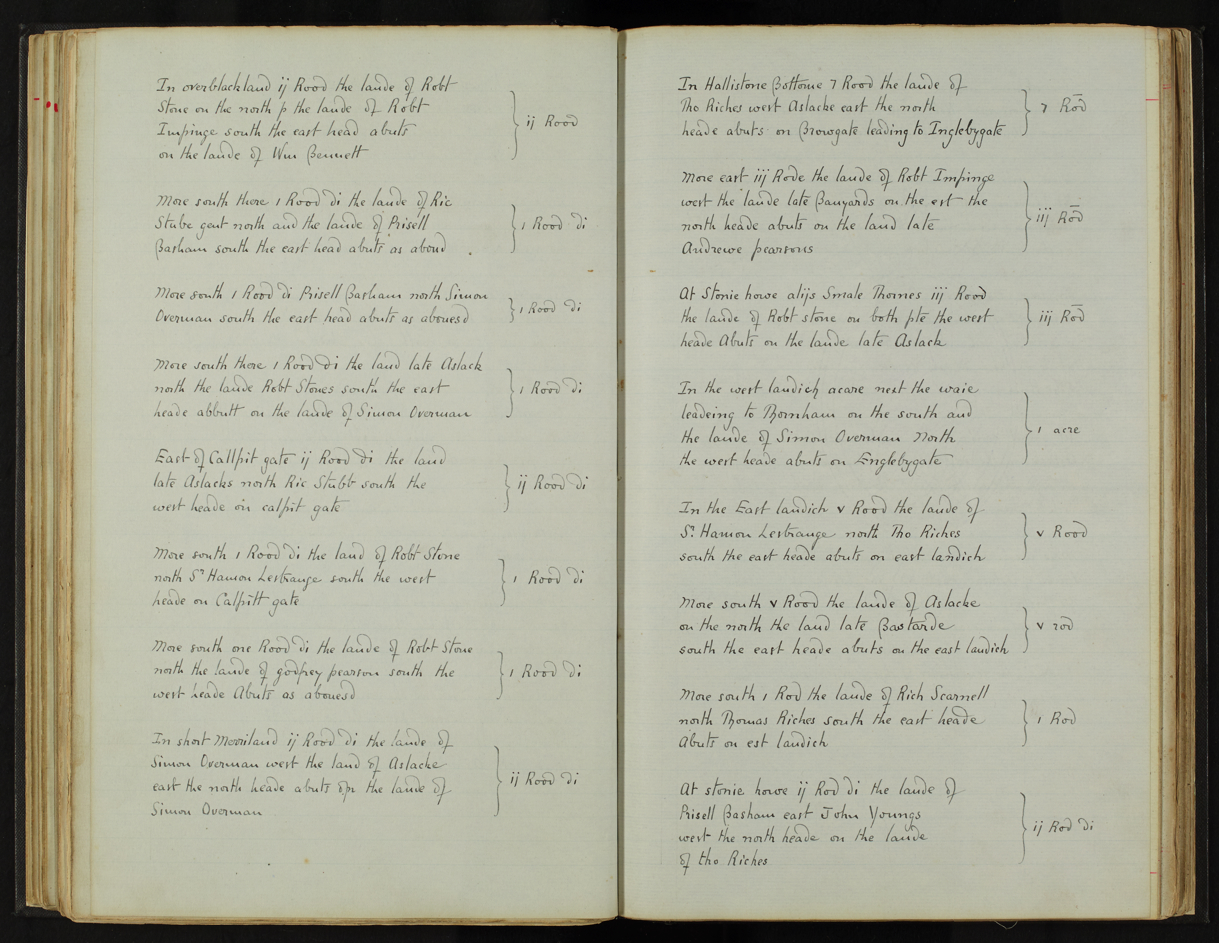 In overblackland ij Rood the lande of Robt
Stone on the north p the lande of Robt
Impinge south the east head abuts
on the lande of Wm Bennett
ij Rood
More south there 1 Rood di the lande of Ric
Stube gent north and the lande of Prisell
Basham south the east head abuts as aboud
1 Rood di
More south 1 Rood di Prisell Basham north Simon
Overman south the east head abuts as abouesd
1 Rood di
More south there 1 Rood di the land late Aslack
north the lande Robt Stones south the east
heade abbutt on the lande of Simon Overman
1 Rood di
East of Callpit gate ij Rood di the land
late Aslacks north Ric Stubb south the
west heade on calpit gate
ij Rood di
More south 1 Rood di the land of Robt Stone
north Sr Hamon Lestrange south the west
heade on Calpitt gate
1 Rood di
More south one Rood di the lande of Robt Stone
north the lande of godfrey pearson south the
west heade Abuts as abouesd
1 Rood di
In short Mooriland ij Rood di the lande of
Simon Overman west the land of Aslacke
east the north heade abuts opn the lande of
Simon Overman
ij Rood di
In Hallistone Bottome 7 Rood the lande of
Tho Riches west Aslacke east the north
heade abuts on Browgate leading to Inglebygate
7 Rōd
More east iij Rode the lande of Robt Impinge
west the lande late Banyards on the est the
north heade abuts on the land late
Andrewe pearsons
iij Rōd
At Stonie howe alijs Smale Thornes iij Rood
the lande of Robt stone on both pte the west
heade Abuts on the lande late Aslack
iij Rōd
In the west landich acare next the waie
leadeing to Thornham on the south and
the lande of Simon Overman North
the west heade abuts on Englebygate
1 acre
In the East landich v Rood the lande of
Sr Hamon Lestrange north Tho Riches
south the east heade abuts on east landich
v Rood
More south v Rood the lande of Aslacke
on the north the land late Bastarde
south the east heade abuts on the east landich
v rod
More south 1 Rod the lande of Rich Scarnell
north Thomas Riches south the east heade
Abuts on est landich
1 Rod
At stonie howe ij Rod di the lande of
Prisell Basham east John Youngs
west the north heade on the lande
of tho Riches
ij Rod di